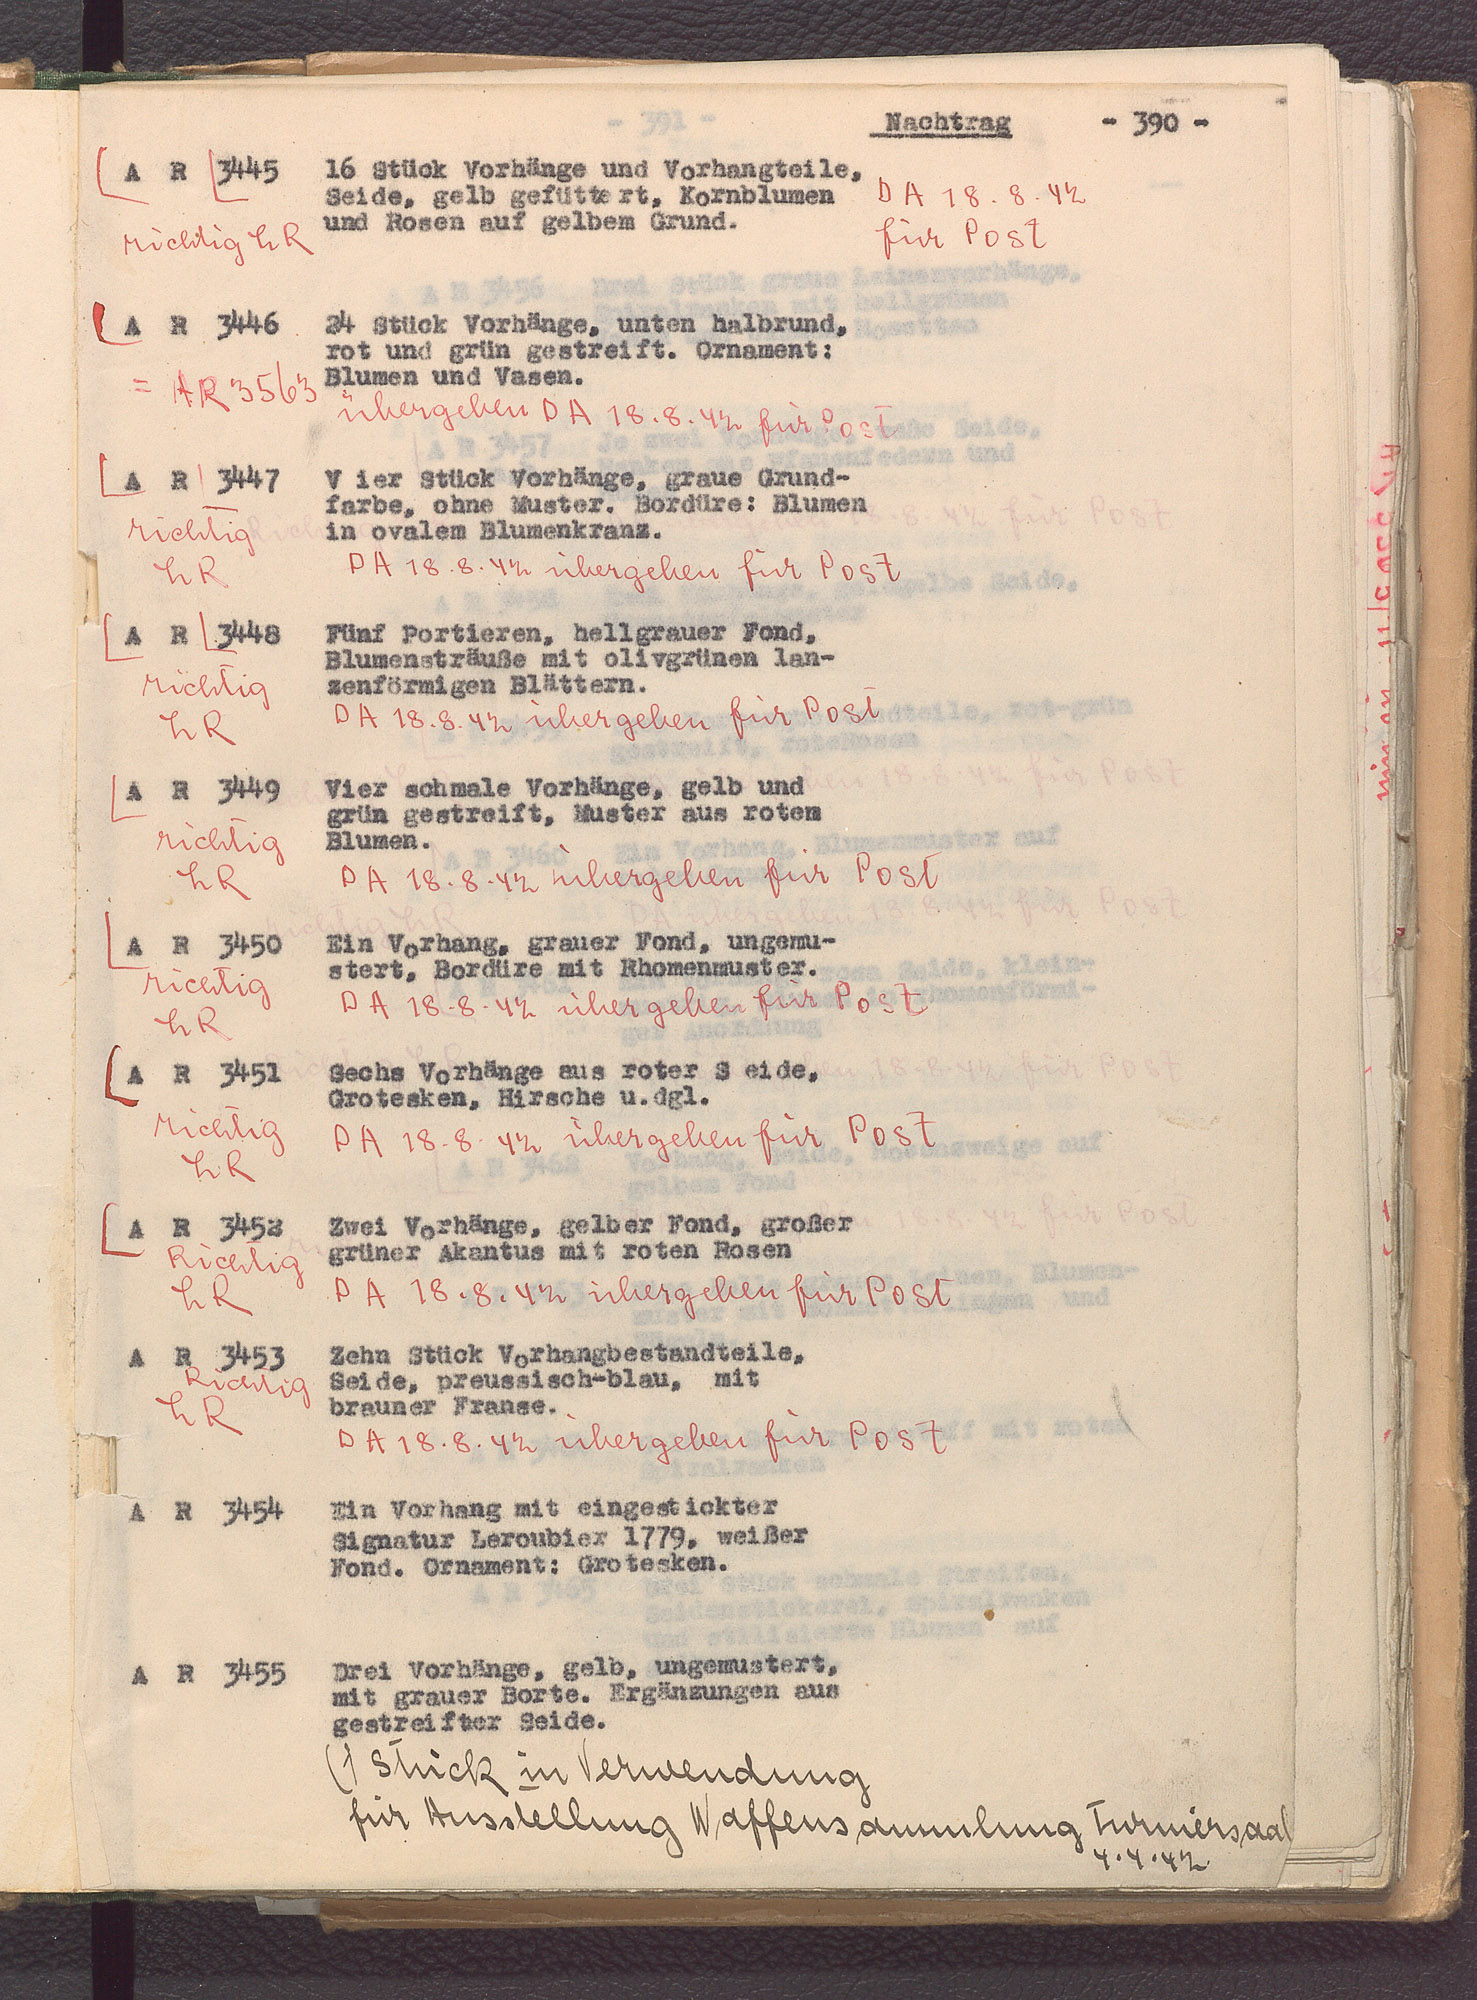 Nachtrag - 390 -
A R 3445 16 Stück Vorhänge und Vorhangteile,
Seide, gelb gefüttert, Kornblumen
und Rosen auf gelbem Grund.
DA 18.8.42
für Post
richtig LR
A R 3446 24 Stück Vorhänge, unten halbrund,
rot und grün gestreift. Ornament:
Blumen und Vasen.
= AR 3563
übergeben DA 18.8.42 für Post
A R 3447 V ier Stück Vorhänge, graue Grund-
farbe, ohne Muster. Bordüre: Blumen
in ovalem Blumenkranz.
richtig
LR
DA 18.8.42 übergeben für Post
A R 3448 Fünf Portieren, hellgrauer Fond,
Blumensträuße mit olivgrünen lan-
zenförmigen Blättern.
richtig
LR
DA 18.8.42 übergeben für Post
A R 3449 Vier schmale Vorhänge, gelb und
grün gestreift, Muster aus roten
Blumen.
richtig
LR
DA 18.8.42 übergeben für Post
A R 3450 Ein Vorhang, grauer Fond, ungemu-
stert, Bordüre mit Rhomenmuster.
richtig
LR
DA 18.8.42 übergeben für Post
A R 3451 Sechs Vorhänge aus roter S eide,
Grotesken, Hirsche u.dgl.
richtig
LR
DA 18.8.42 übergeben für Post
A R 3452 Zwei Vorhänge, gelber Fond, großer
grüner Akantus mit roten Rosen
Richtig
LR
DA 18.8.42 übergeben für Post
A R 3453 Zehn Stück Vorhangbestandteile,
Seide, preussisch-blau, mit
brauner Franse.
Richtig
LR
DA 18.8.42 übergeben für Post
A R 3454 Ein Vorhang mit eingestickter
Signatur Leroubier 1779, weißer
Fond. Ornament: Grotesken.
A R 3455 Drei Vorhänge, gelb, ungemustert,
mit grauer Borte. Ergänzungen aus
gestreifter Seide.
(1 Stück in Verwendung
für Ausstellung Waffensammlung Turniersaal
4.4.42